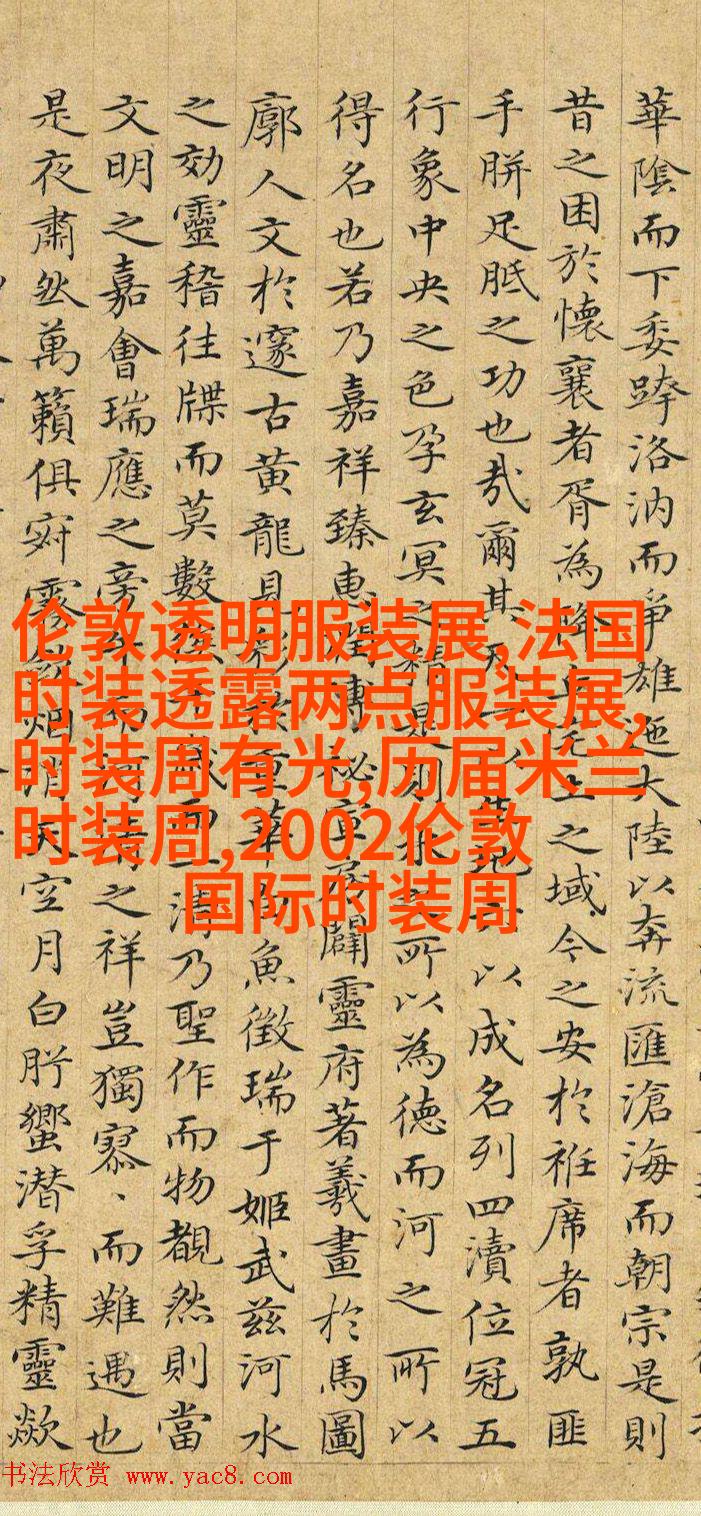 華陰而下委跨洛汭而爭雄迤大陸以奔流匯滄海而朝宗是則
昔之困於懷襄者胥為降丘宅土之域今之安於袵席者孰匪
手胼足胝之功也哉爾其以成名列四瀆位冠五
行象中央之色孕玄冥之精是則所以為德而河之所以
得名也若乃嘉祥臻惠秘闢靈府著羲畫於馬圖
廓人文於邃古黃龍見重華白魚徵瑞于姬武茲河水
之効靈稽往牒而莫數清乃聖作而物覩然則當
文明之嘉會瑞應之旁之祥豈獨寡、而難遇也
是夜肅然萬籟俱寂霧烟消天空月白肸蠁潛孚精靈歘
伦敦透明服装展,法国
时装透露两点服装展,
时装周有光,历届米兰
时装周,2002伦敦
国际时装周
书法欣赏 www.yac8.com